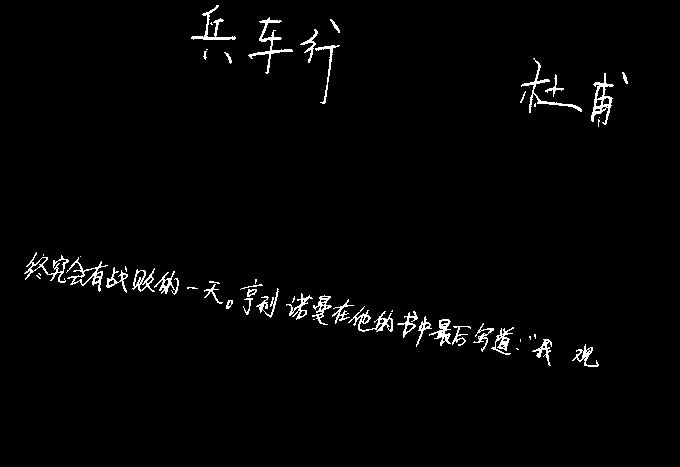 兵车行
杜甫
终究会有战败的一天。亨利 诺曼在他的书中最后写道:“我 观